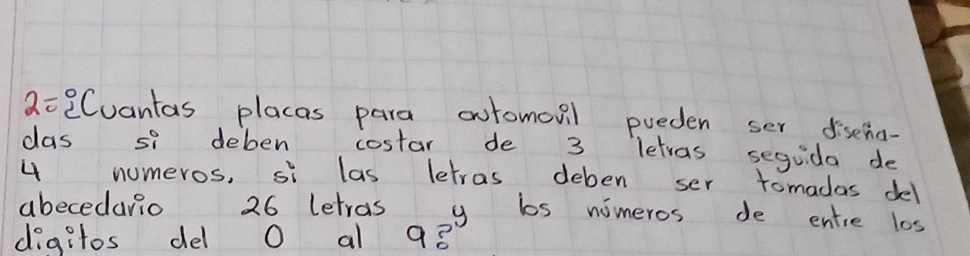 2=¿Cuantas placas para automovil pueden ser diseña-
das si deben costar de 3 letras seguida de
4 numeros, si las letras deben ser tomadas del
abecedario 26 letras y los números de entre los
digitos del 0 al 9?